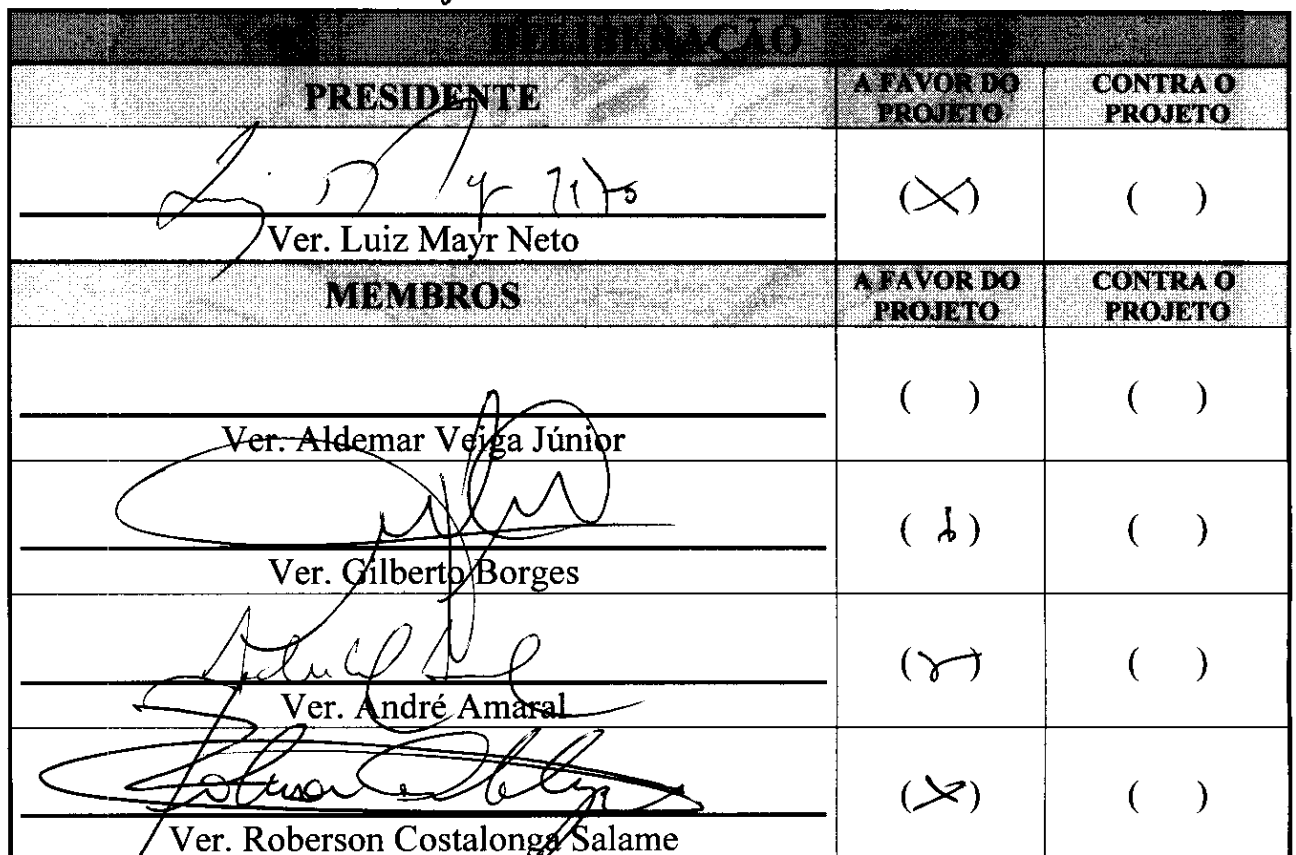 DELIBERAÇÃO
PRESIDENTE A FAVOR DO PROJETO CONTRA O PROJETO
(X) ( )
Ver. Luiz Mayr Neto
MEMBROS A FAVOR DO PROJETO CONTRA O PROJETO
( ) ( )
Ver. Aldemar Veiga Júnior
( ) 
Ver. Gilberto Borges
( )
Ver. André Amaral
(X) ( )
Ver. Roberson Costalonga Salame